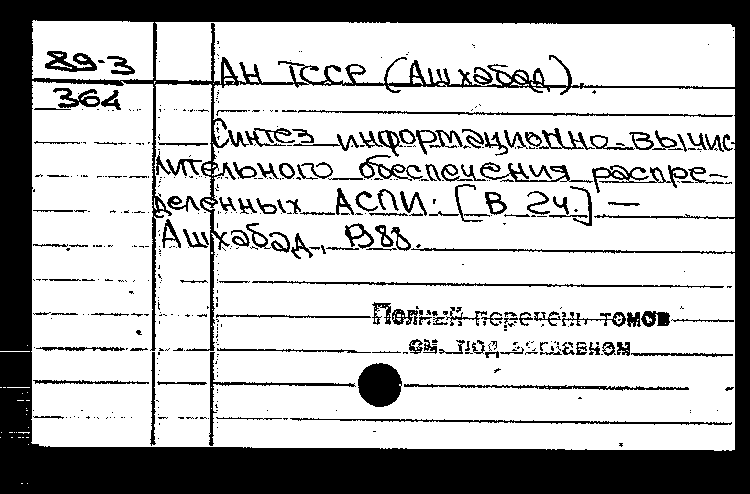 89-3
364
АН ТССР (Ашхабад).
Синтез информационно-вычис-
лительного обеспечения распре-
деленных АСПИ: [В 2ч.] —
Ашхабад, 1988.
Полный перечень томов
см. под заглавном